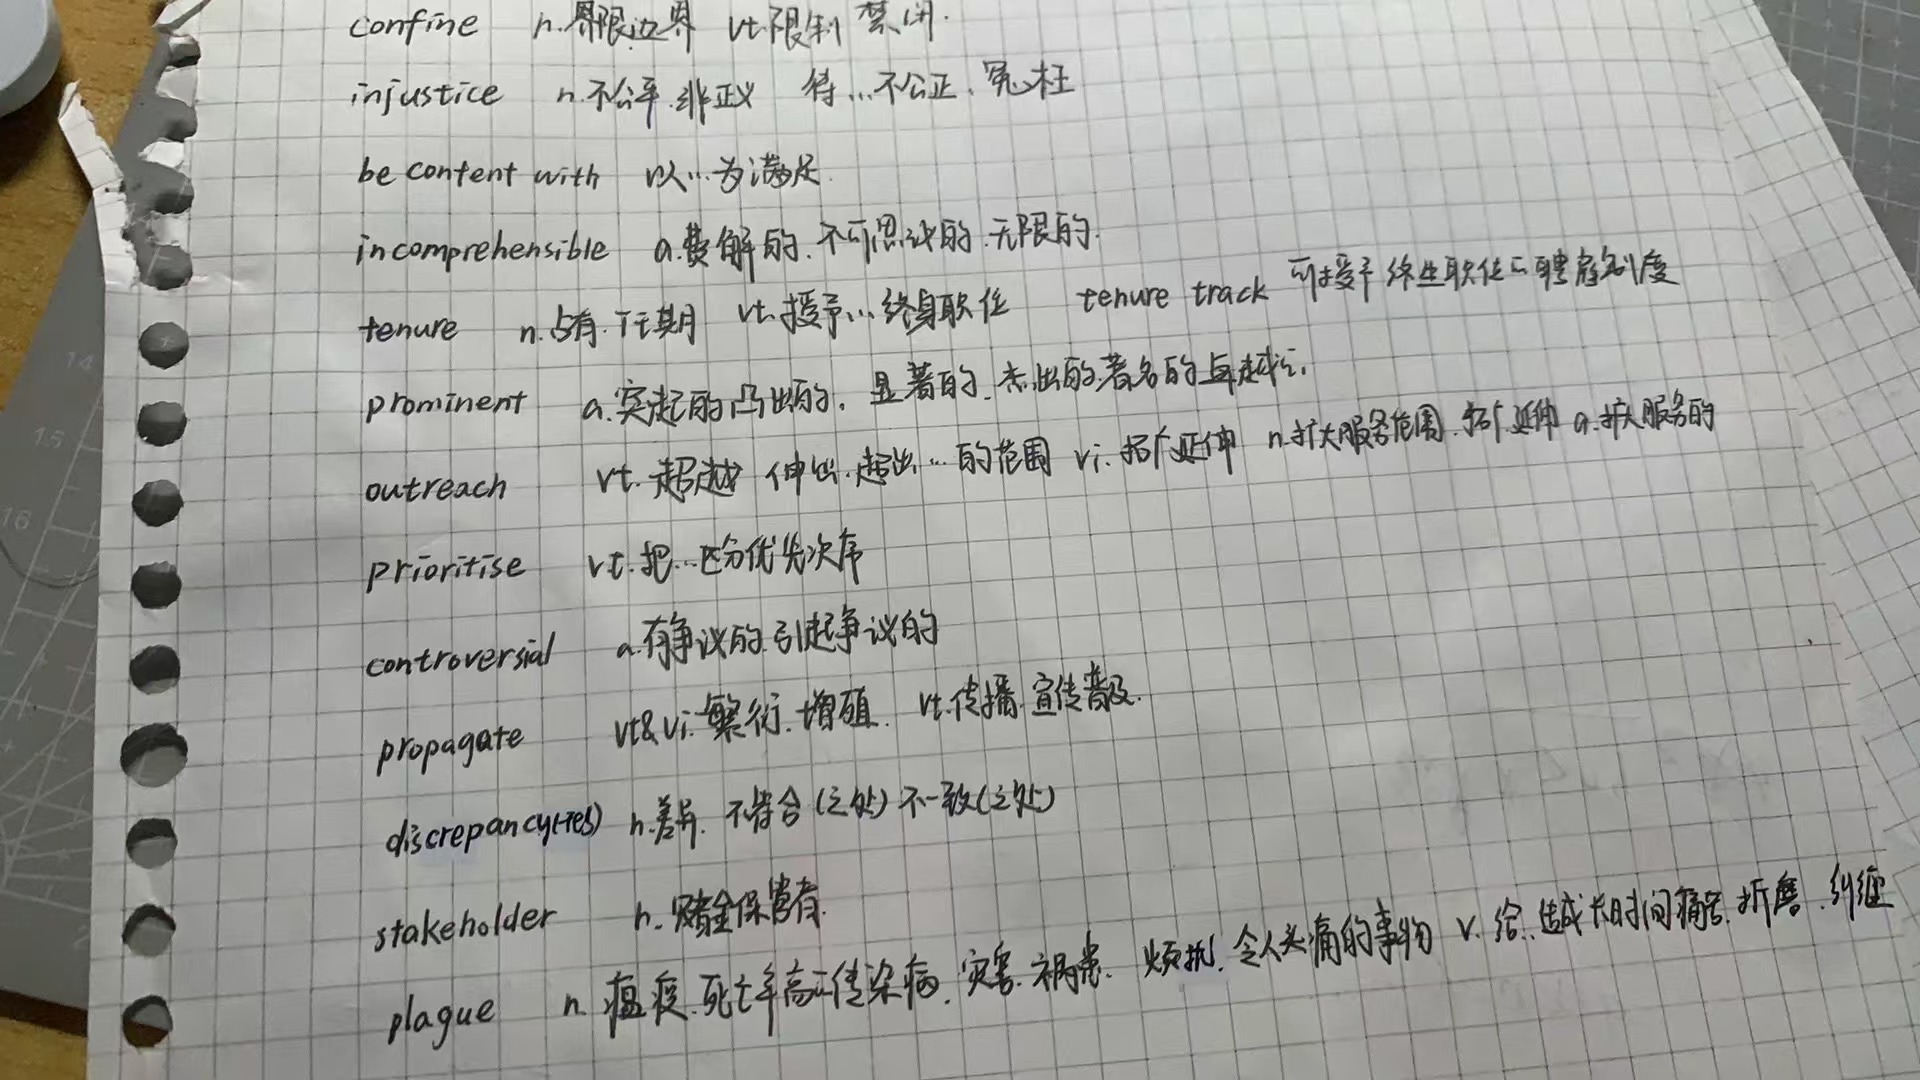 confine n.界限边界 vt.限制 禁闭.
injustice n.不公平.非正义 待...不公正.冤枉
be content with 以...为满足
incomprehensible a.费解的.不可思议的.无限的.
tenure n.占有.任期 vt.授予...终身职位 tenure track 可授予终生职位的聘雇制度
prominent a.突起的凸出的.显著的.杰出的著名的卓越的.
outreach vt.超越 伸出.超出...的范围 vi.拓广延伸 n.扩大服务范围.拓广延伸 a.扩大服务的
prioritise vt.把...区分优先次序
controversial a.有争议的.引起争议的
propagate vt&vi.繁衍.增殖. vt.传播.宣传普及.
discrepancy(-ies) n.差异.不符合(之处)不一致(之处)
stakeholder n.赌金保管者.
plague n.瘟疫.死亡率高的传染病.灾害.祸患.烦扰.令人头痛的事物 v.给...造成长时间痛苦.折磨.纠缠